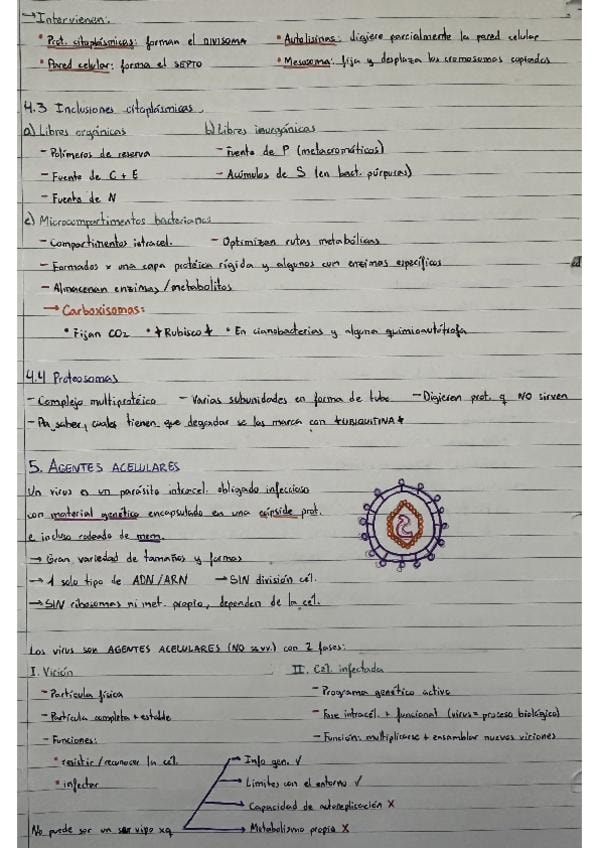 →Intervienen:
• Prot. citoplásmicas: forman el DIVISOMA • Autolisinas: digiere parcialmente la pared celular
• Pared celular: forma el SEPTO • Mesosoma: fija y desplaza los cromosomas copiados
4.3 Inclusiones citoplásmicas.
a) Libres orgánicas b) Libres inorgánicas
- Polímeros de reserva - Fuente de P (metacromáticos)
- Fuente de C + E - Acúmulos de S (en bact. púrpuras)
- Fuente de N
c) Microcompartimentos bacterianos
- Compartimentos intracel. - Optimizan rutas metabólicas
- Formados x una capa protéica rígida y algunos con enzimas específicos
- Almacenan enzimas/metabolitos
→ Carboxisomas:
• Fijan CO2 • *Rubisco* • En cianobacterias y alguna quimioautótrofa
4.4 Proteosomas
- Complejo multiprotéico - Varias subunidades en forma de tubo - Digieren prot. q NO sirven
- Pa saber, cuales tienen que degradar se las marca con *UBIQUITINA*
5. AGENTES ACELULARES
Un virus es un parásito intracel. obligado infeccioso
con material genético encapsulado en una cápside prot.
e incluso rodeado de mem.
→ Gran variedad de tamaños y formas
→ 1 solo tipo de ADN/ARN → SIN división cél.
→ SIN ribosomas ni met. propio, dependen de la cél.
Los virus son AGENTES ACELULARES (NO ss.vv.) con 2 fases:
I. Virión II. Cél. infectada
- Partícula física - Programa genético activo
- Partícula completa + estable - Fase intracél. + funcional (virus = proceso biológico)
- Funciones: - Función: multiplicarse + ensamblar nuevos viriones
• resistir/reconocer la cél. → Info gen. ✓
• infectar → Límites con el entorno ✓
→ Capacidad de autoreplicación X
No puede ser un ser vivo xq → Metabolismo propio X